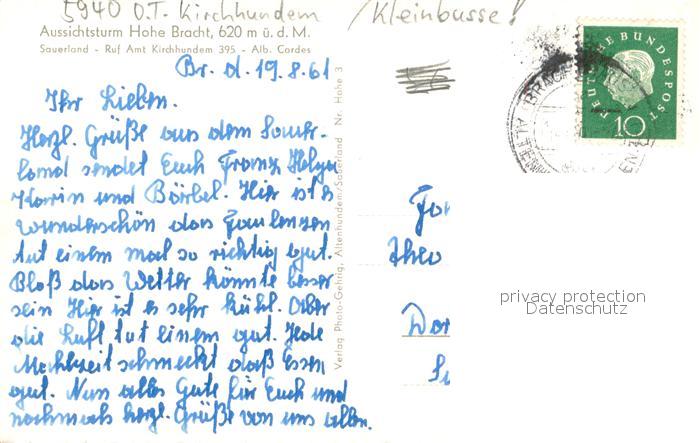 5940 O.T. Kirchhundem /Kleinbusse!
Aussichtsturm Hohe Bracht, 620 m ü. d. M.
Sauerland - Ruf Amt Kirchhundem 395 - Alb. Cordes
Br. d. 19.8.61
Ihr Lieben.
Herzl. Grüße aus dem Sauer-
land sendet Euch Franz Helga
Karin und Bärbel. Hier ist es
wunderschön das Faulenzen
tut einem mal so richtig gut.
Bloß das Wetter könnte besser
sein Hier ist es sehr kühl. Aber
die Luft tut einem gut. Jede
Mahlzeit schmeckt daß Essen
gut. Nun alles Gute für Euch und
nochmals herzl. Grüße von uns allen.
Verlag Photo-Gehrig, Altenhundem/Sauerland Nr. Hohe 3
DEUTSCHE BUNDESPOST
10
Fa
Theo
Dor
privacy protection
Datenschutz